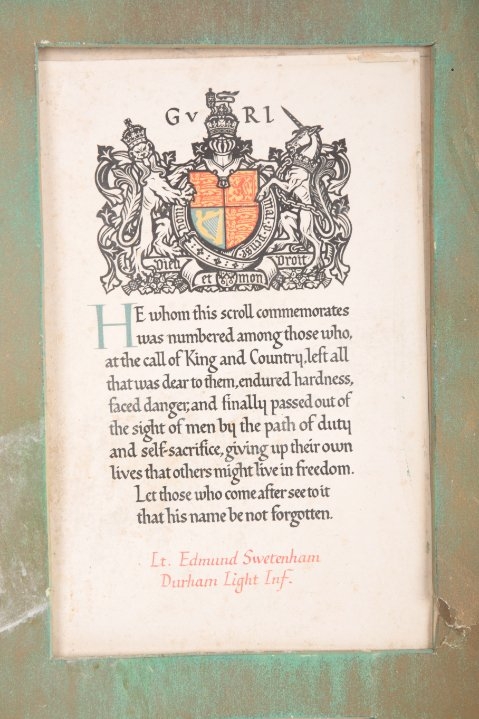 GV RI
Dieu et mon Droit
HE whom this scroll commemorates
was numbered among those who,
at the call of King and Country, left all
that was dear to them, endured hardness,
faced danger, and finally passed out of
the sight of men by the path of duty
and self-sacrifice, giving up their own
lives that others might live in freedom.
Let those who come after see to it
that his name be not forgotten.
Lt. Edmund Swetenham
Durham Light Inf.